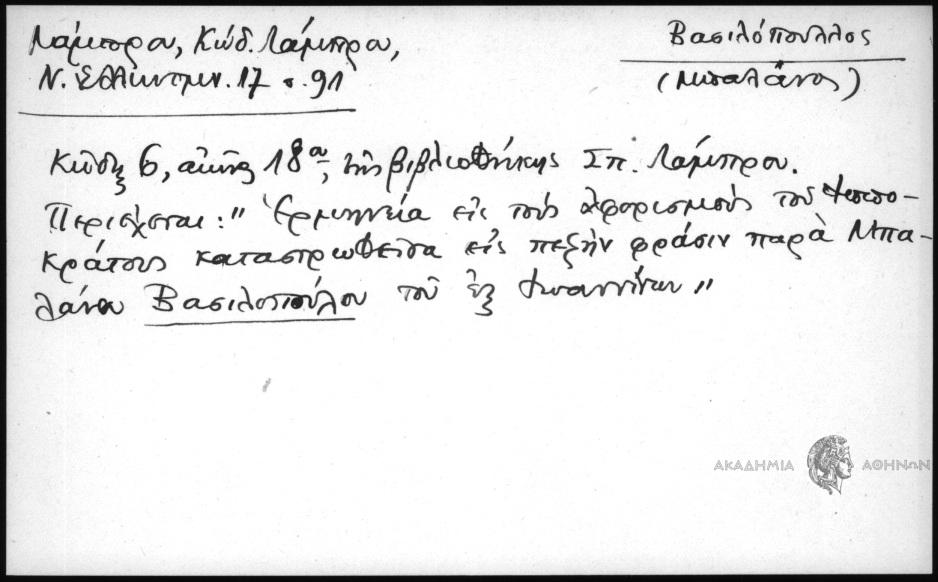 Λάμπρου, Κώδ. Λάμπρου,
Ν. Ἑλληνομν. 17 σ. 91
Βασιλόπουλλος
(Μπαλάνος)
Κῶδιξ 6, αἰῶνος 18ου, τῆς βιβλιοθήκης Σπ. Λάμπρου.
Περιέχεται: "Ἑρμηνεία εἰς τοὺς ἀφορισμοὺς τοῦ Ἱππο-
κράτους καταστρωθεῖσα εἰς πεζὴν φράσιν παρὰ Μπα-
λάνου Βασιλοπούλου τοῦ ἐξ Ἰωαννίνων"
ΑΚΑΔΗΜΙΑ ΑΘΗΝΩΝ